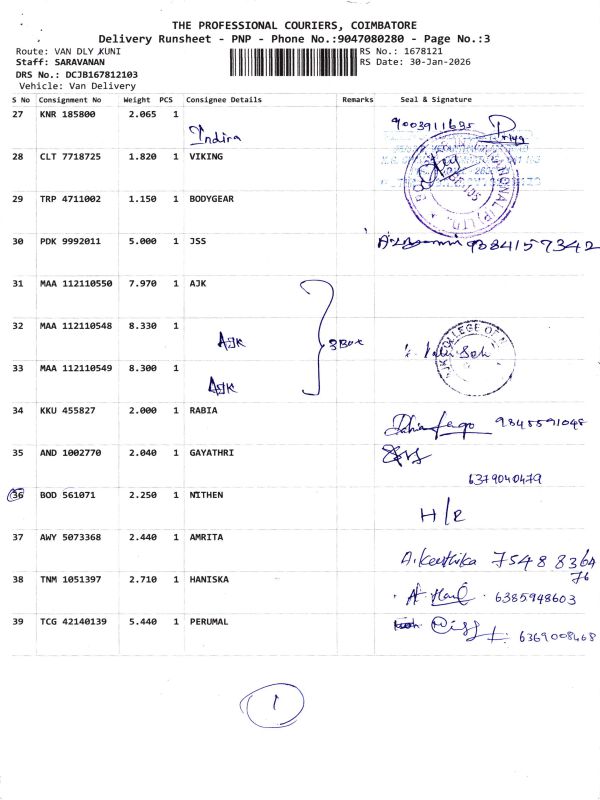 THE PROFESSIONAL COURIERS, COIMBATORE
Delivery Runsheet - PNP - Phone No.:9047080280 - Page No.:3
Route: VAN DLY KUNI
RS No.: 1678121
Staff: SARAVANAN
RS Date: 30-Jan-2026
DRS No.: DCJB167812103
Vehicle: Van Delivery
S No Consignment No Weight PCS Consignee Details Remarks Seal & Signature
27 KNR 185800 2.065 1 9003911635 Priya
Indira
28 CLT 7718725 1.820 1 VIKING
29 TRP 4711002 1.150 1 BODYGEAR
30 PDK 9992011 5.000 1 JSS 9884157342
31 MAA 112110550 7.970 1 AJK
32 MAA 112110548 8.330 1
AJK 3 Box
33 MAA 112110549 8.300 1
AJK
34 KKU 455827 2.000 1 RABIA
9845591048
35 AND 1002770 2.040 1 GAYATHRI
6379040479
36 BOD 561071 2.250 1 NITHEN
H/R
37 AWY 5073368 2.440 1 AMRITA
A. Keerthika 75488364
76
38 TNM 1051397 2.710 1 HANISKA
6385948603
39 TCG 42140139 5.440 1 PERUMAL
6369008468
1